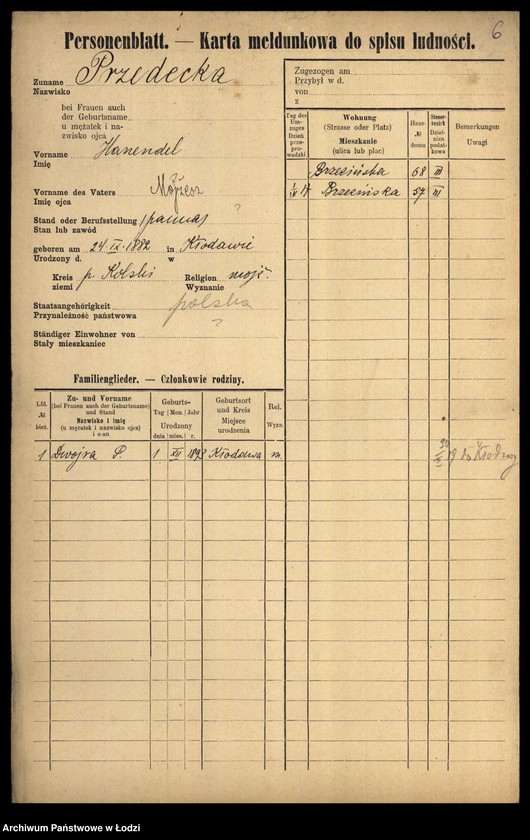 6
Personenblatt. — Karta meldunkowa do spisu ludności.
Zuname Przedecka
Nazwisko
bei Frauen auch
der Geburtsname
u mężatek i na-
zwisko ojca
Vorname Hanendel
Imię
Vorname des Vaters Mojżesz
Imię ojca
Stand oder Berufsstellung (panna) ?
Stan lub zawód
geboren am 24 IX. 1882 in Kłodawie
Urodzony d. w
Kreis p. Kolski Religion mojż.
ziemi Wyznanie
Staatsangehörigkeit polska
Przynależność państwowa ?
Ständiger Einwohner von
Stały mieszkaniec
Zugezogen am
Przybył w d.
von
z
Tag des Um-zuges Dzień prze-prowadzki
Wohnung (Strasse oder Platz) Mieszkanie (ulica lub plac)
Haus-№ domu
Steuer-bezirk Dziel-nica podat-kowa
Bemerkungen Uwagi
Brzezińska 68 III
1/IX 17 Brzezińska 57 III
Familienglieder. — Członkowie rodziny.
Lfd. № bież.
Zu- und Vorname (bei Frauen auch der Geburtsname) und Stand Nazwisko i imię (u mężatek i nazwisko ojca) i stan
Geburts- Tag Mon. Jahr Urodzony dnia mies. r.
Geburtsort und Kreis Miejsce urodzenia
Rel. Wyzn.
1 Dwojra P. 1 XII 1893 Kłodawa m. 30/IX 19 do Kłodawy
Archiwum Państwowe w Łodzi